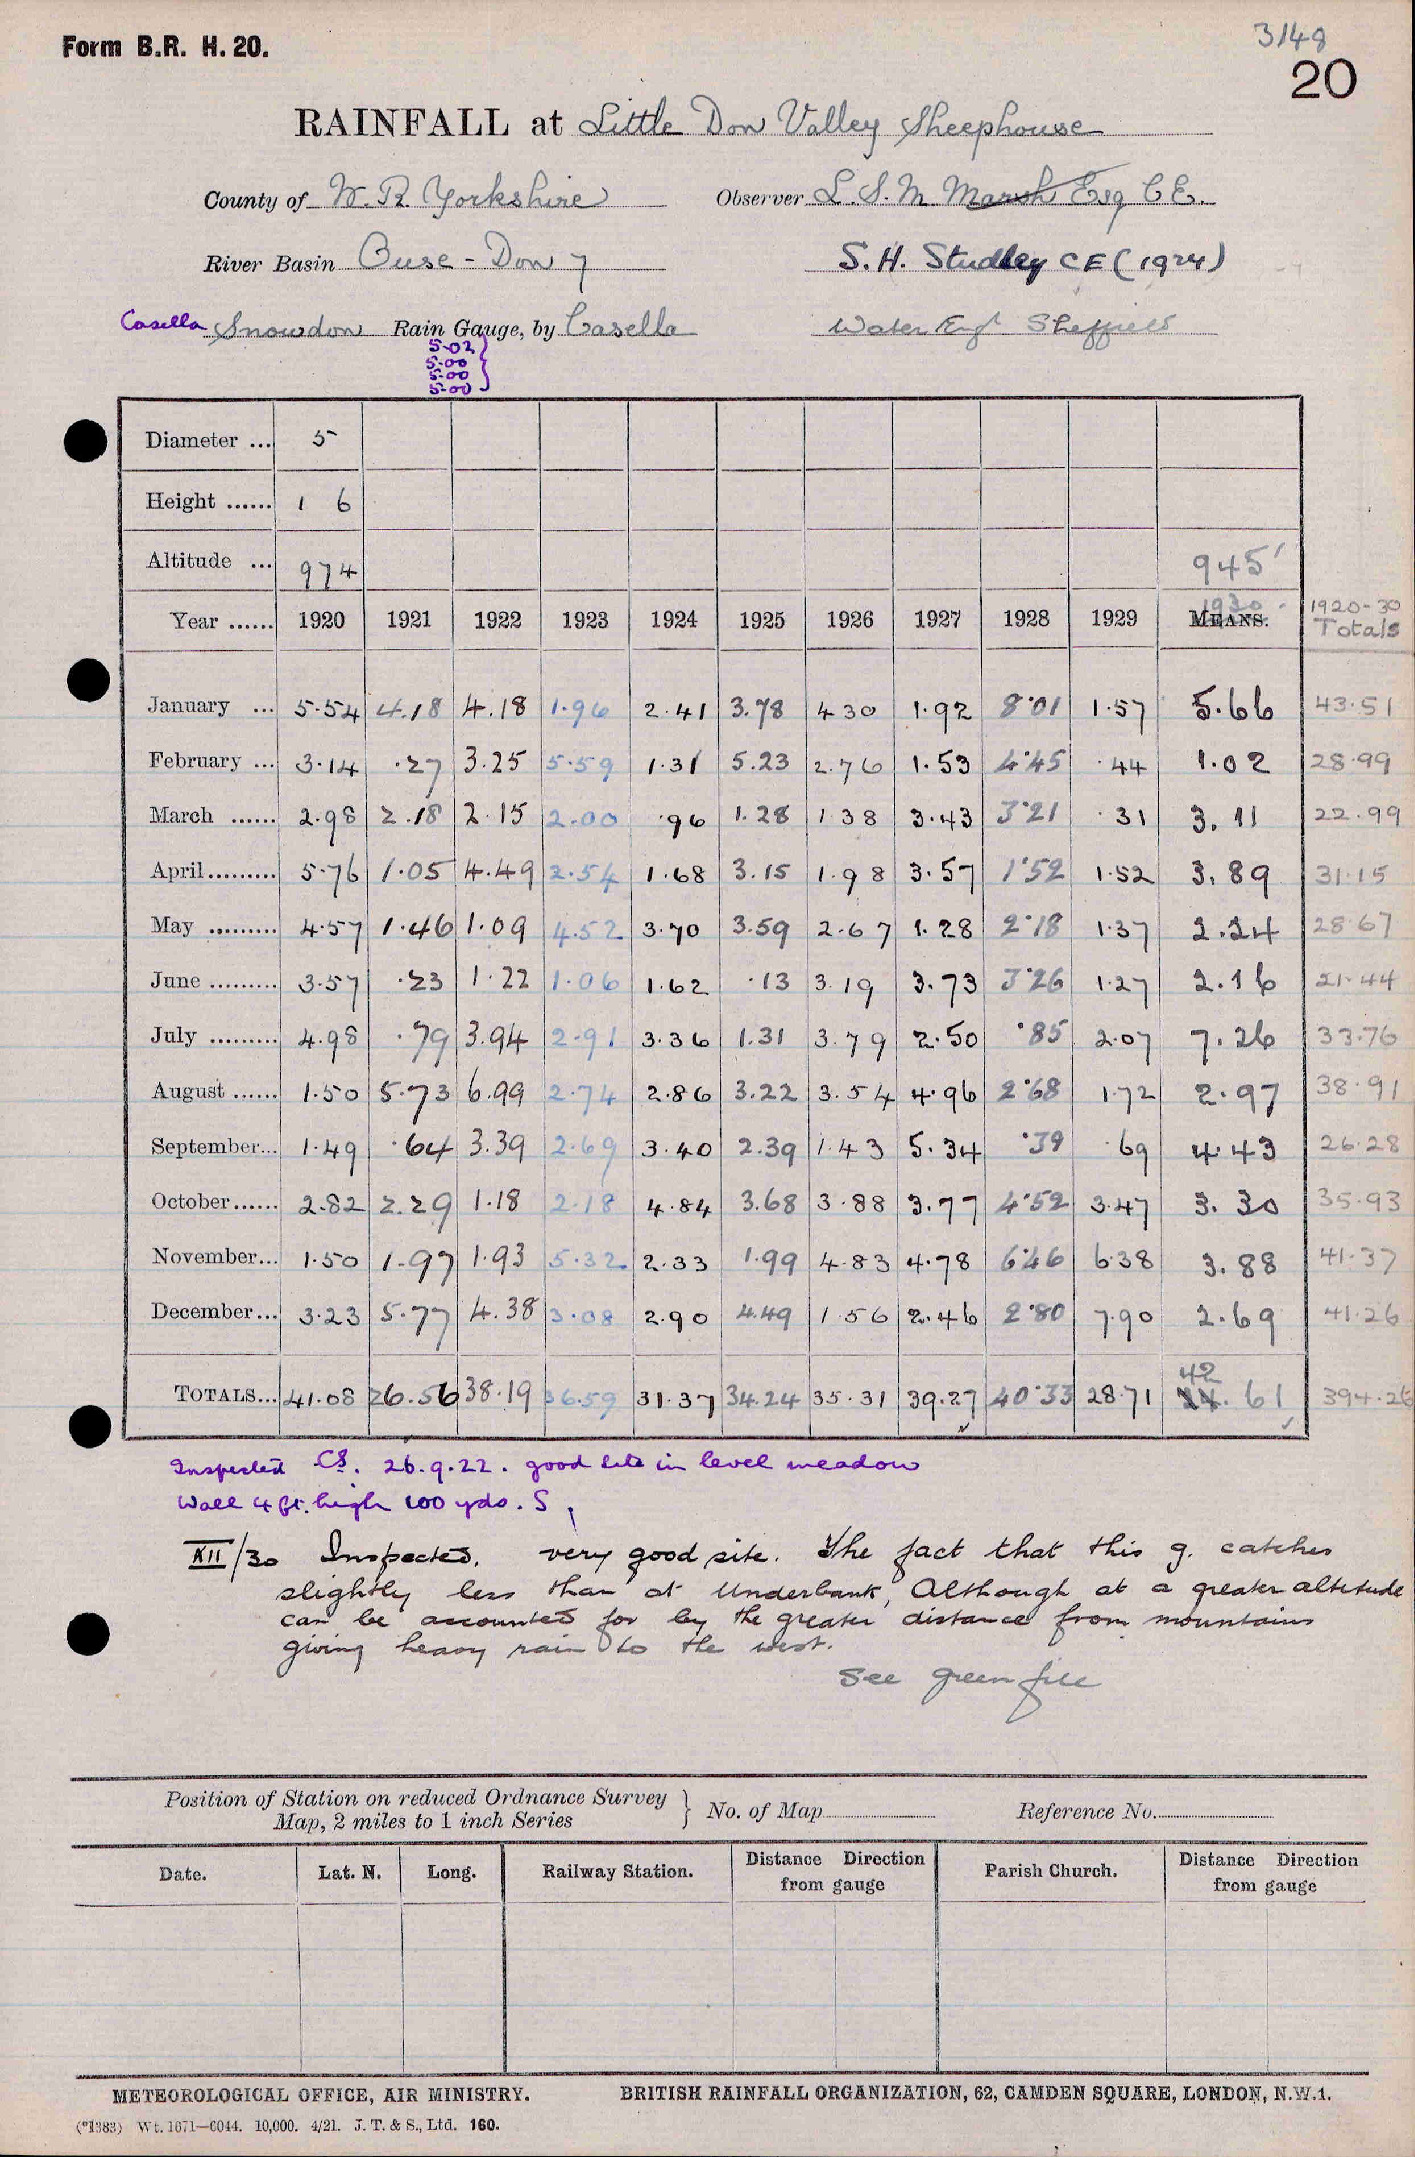 3148
Form B.R. H. 20.
20
RAINFALL at Little Don Valley Sheephouse
County of W. R. Yorkshire Observer L. S. M Marsh Esq C E.
River Basin Ouse - Don 7 S. H. Studley C E (1924)
Casella Snowdon Rain Gauge, by Casella Water Engr Sheffield
5.02
5.00
5.00
5.00
Diameter ... 5
Height ...... 1 6
Altitude ... 974 945'
Year ...... 1920 1921 1922 1923 1924 1925 1926 1927 1928 1929 MEANS. 1930. 1920-30 Totals
January ... 5.54 4.18 4.18 1.96 2.41 3.78 4 30 1.92 8.01 1.57 5.66 43.51
February ... 3.14 .27 3.25 5.59 1.31 5.23 2.76 1.53 4.45 .44 1.02 28.99
March ...... 2.98 2.18 2.15 2.00 .96 1.28 1 38 3.43 3.21 .31 3.11 22.99
April......... 5.76 1.05 4.49 2.54 1.68 3.15 1.98 3.57 1.52 1.52 3.89 31.15
May ......... 4.57 1.46 1.09 4.52 3.70 3.59 2.67 1.28 2.18 1.37 2.24 28.67
June ......... 3.57 .23 1.22 1.06 1.62 .13 3.19 3.73 3.26 1.27 2.16 21.44
July ......... 4.98 .79 3.94 2.91 3.36 1.31 3.79 2.50 .85 2.07 7.26 33.76
August ...... 1.50 5.73 6.99 2.74 2.86 3.22 3.54 4.96 2.68 1.72 2.97 38.91
September... 1.49 .64 3.39 2.69 3.40 2.39 1.43 5.34 .39 .69 4.43 26.28
October...... 2.82 2.29 1.18 2.18 4.84 3.68 3.88 3.77 4.52 3.47 3.30 35.93
November... 1.50 1.97 1.93 5.32 2.33 1.99 4.83 4.78 6.46 6.38 3.88 41.37
December... 3.23 5.77 4.38 3.08 2.90 4.49 1 56 2.46 2.80 7.90 2.69 41.26
TOTALS... 41.08 26.56 38.19 36.59 31.37 34.24 35.31 39.27 40.33 28.71 42.61 394.26
Inspected CS. 26.9.22. good site in level meadow
Wall 4 ft. high 100 yds. S.
XII/30 Inspected. very good site. The fact that this g. catches
slightly less than at Underbank, Although at a greater altitude
can be accounted for by the greater distance from mountains
giving heavy rain to the west.
See green file
Position of Station on reduced Ordnance Survey
Map, 2 miles to 1 inch Series } No. of Map Reference No.
Date. Lat. N. Long. Railway Station. Distance Direction from gauge Parish Church. Distance Direction from gauge
METEOROLOGICAL OFFICE, AIR MINISTRY. BRITISH RAINFALL ORGANIZATION, 62, CAMDEN SQUARE, LONDON, N.W.1.
(*1383) Wt. 1671—6044. 10,000. 4/21. J. T. & S., Ltd. 160.